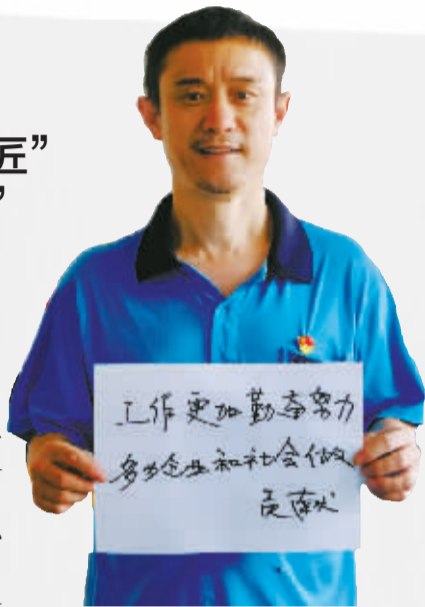 匠”
工作更加勤奋努力
多为企业和社会做
贡献